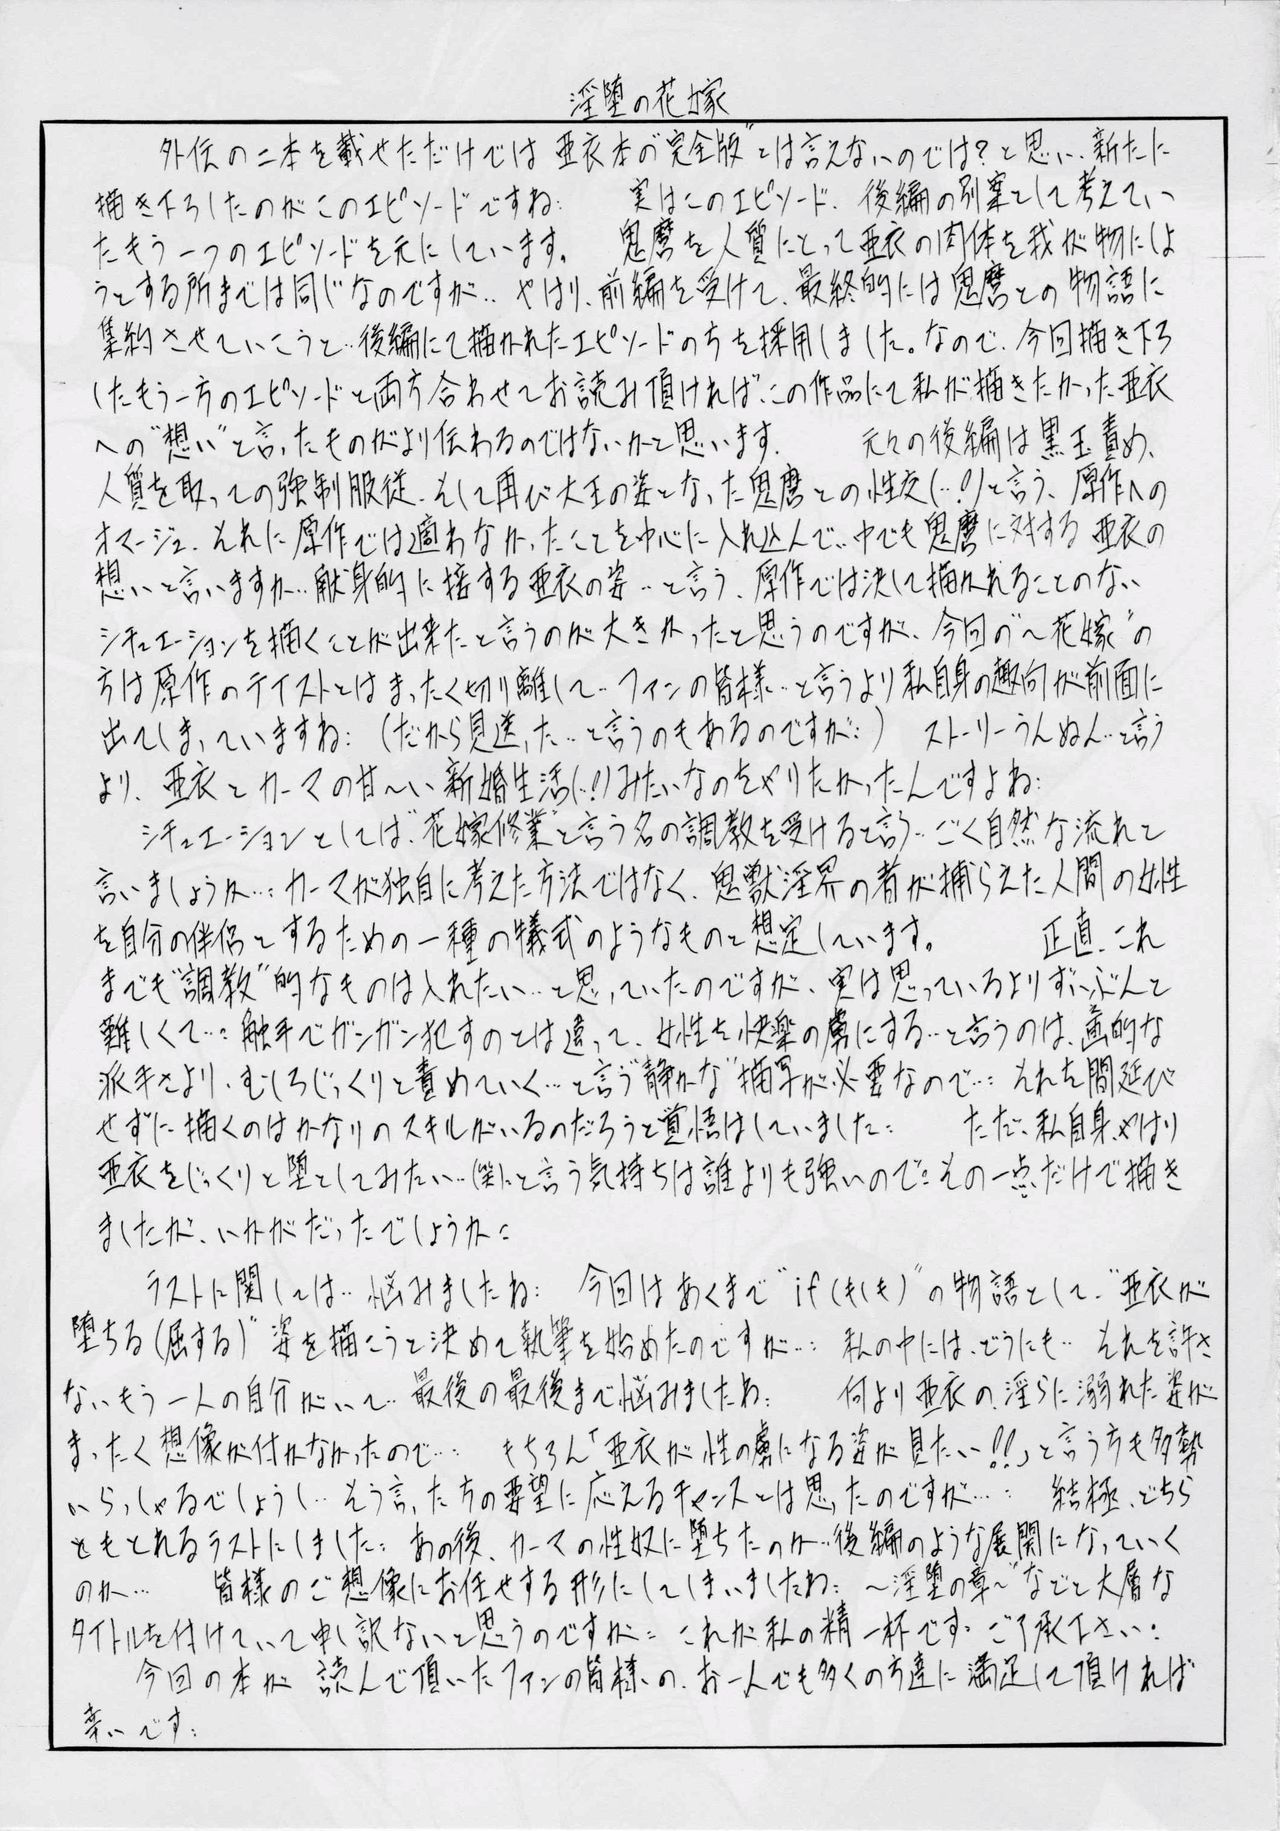 淫堕の花嫁
外伝の二本を載せただけでは亜衣本の"完全版"とは言えないのでは?と思い、新たに
描き下ろしたのがこのエピソードですね… 実はこのエピソード、後編の別案として考えてい
たもう一つのエピソードを元にしています。 鬼麿を人質にとって亜衣の肉体を我が物にしよ
うとする所までは同じなのですが… やはり、前編を受けて、最終的には鬼麿との物語に
集約させていこうと…後編にて描かれたエピソードの方を採用しました。なので、今回描き下ろ
したもう一方のエピソードと両方合わせてお読み頂ければ、この作品にて私が描きたかった亜衣
への"想い"と言ったものがより伝わるのではないかと思います。 元々の後編は黒玉責め、
人質を取っての強制服従、そして再び大王の姿となった鬼麿との性交(…!)と言う、原作への
オマージュ、それに原作では適わなかったことを中心に入れ込んで…中でも鬼麿に対する亜衣の
想いと言いますか…献身的に接する亜衣の姿…と言う、原作では決して描かれることのない
シチュエーションを描くことが出来たと言うのが大きかったと思うのですが、今回の"〜花嫁"の
方は原作のテイストとはまったく切り離して…ファンの皆様…と言うより私自身の趣向が前面に
出てしまっていますね… (だから見送った…と言うのもあるのですが…) ストーリーうんぬん…と言う
より、亜衣とカーマの甘〜い新婚生活(…!)みたいなのをやりたかったんですよね…
シチュエーションとしては"花嫁修業"と言う名の調教を受けると言う…ごく自然な流れと
言いましょうか…カーマが独自に考えた方法ではなく、鬼獣淫界の者が捕らえた人間の女性
を自分の伴侶とするための一種の儀式のようなものと想定しています。 正直、これ
までも"調教"的なものは入れたい…と思っていたのですが、実は思っているよりずいぶんと
難しくて…触手でガンガン犯すのとは違って、女性を快楽の虜にする…と言うのは、画的な
派手さより、むしろじっくりと責めていく…と言う"静かな"描写が必要なので…それを間延び
せずに描くのはかなりのスキルがいるのだろうと覚悟はしていました… ただ、私自身、やはり
亜衣をじっくりと堕としてみたい…(笑)と言う気持ちは誰よりも強いので…その一点だけで描き
ましたが、いかがだったでしょうか…
ラストに関しては…悩みましたね… 今回はあくまで"if(もしも)"の物語として、"亜衣が
堕ちる(屈する)"姿を描こうと決めて執筆を始めたのですが… 私の中には、どうにも…それを許さ
ないもう一人の自分がいて…最後の最後まで悩みましたね… 何より亜衣の淫らに溺れた姿が
まったく想像が付かなかったので… もちろん「亜衣が性の虜になる姿が見たい!!」と言う方も多勢
いらっしゃるでしょうし…そう言った方の要望に応えるチャンスとは思ったのですが… 結極、どちら
ともとれるラストにしました… あの後、カーマの性奴に堕ちたのか…後編のような展開になっていく
のか… 皆様のご想像にお任せする形にしてしまいましたね… 〜淫堕の章〜"などと大層な
タイトルを付けていて申し訳ないと思うのですが… これが私の精一杯です…ご了承下さい…
今回の本が 読んで頂いたファンの皆様の、お一人でも多くの方達に満足して頂ければ
幸いです…